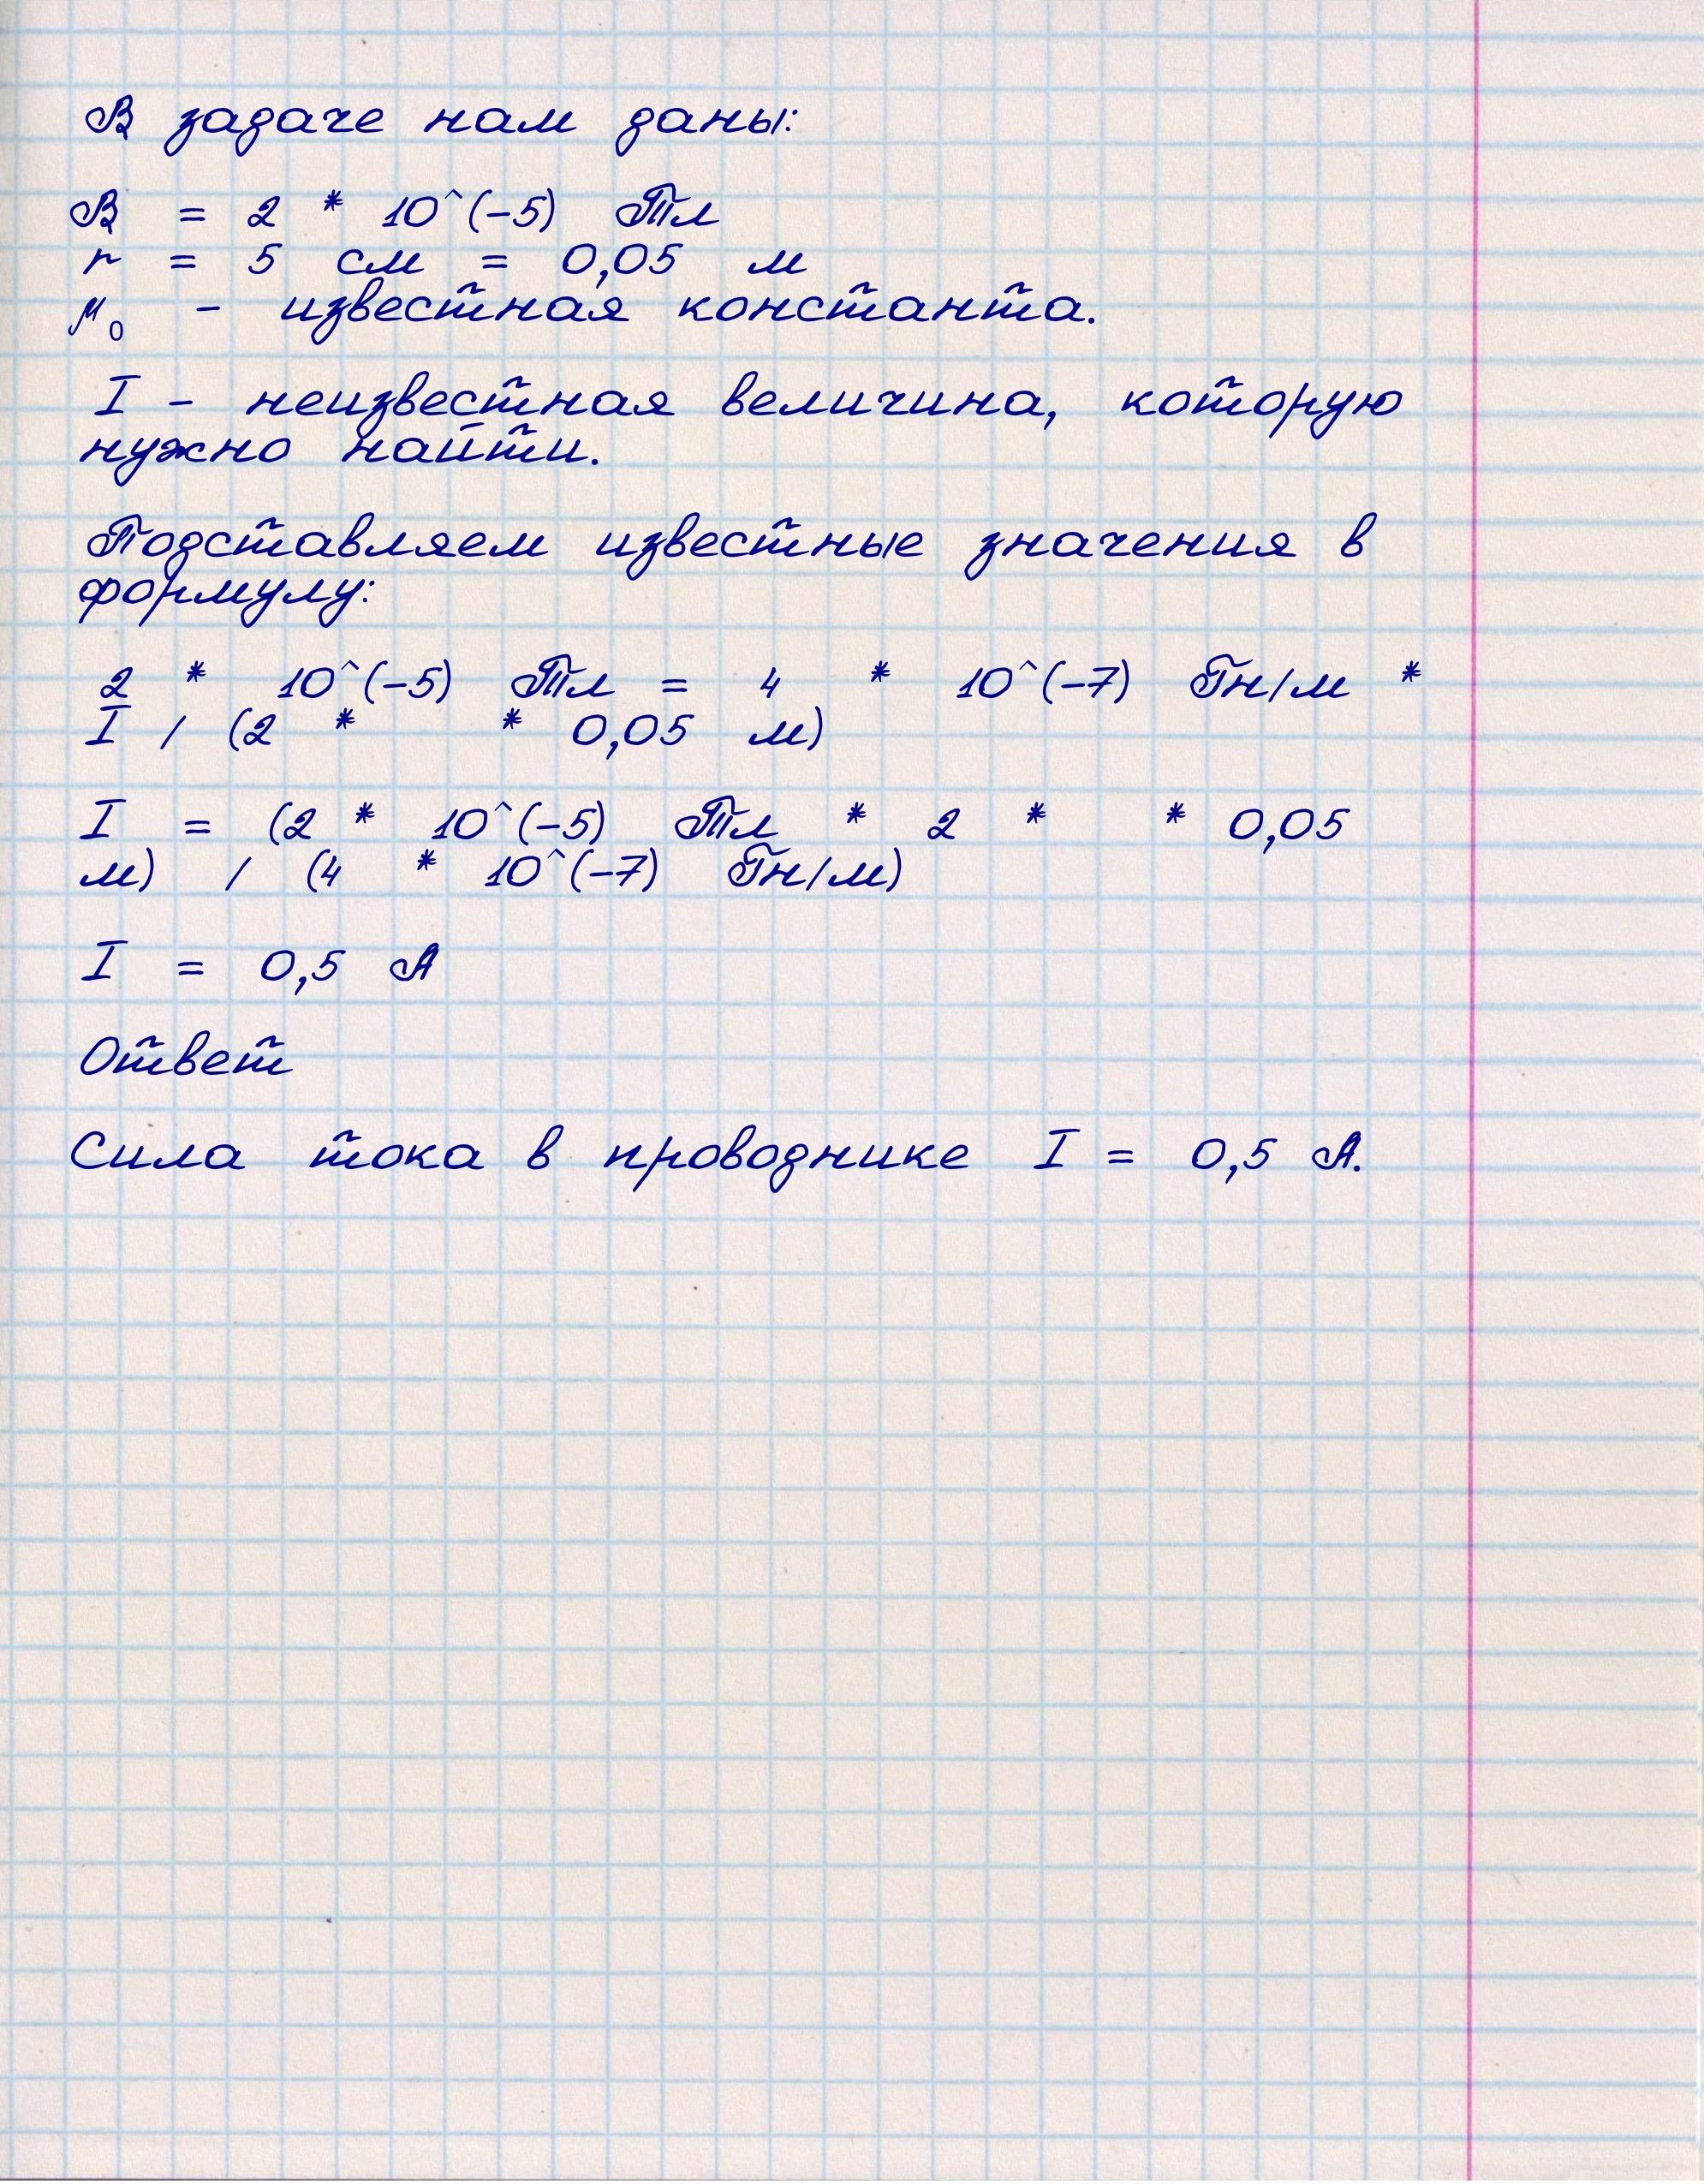 В задаче нам даны:
В = 2 * 10^(-5) Тл
r = 5 см = 0,05 м
μ₀ - известная константа.
I - неизвестная величина, которую
нужно найти.
Подставляем известные значения в
формулу:
2 * 10^(-5) Тл = 4 * 10^(-7) Гн/м *
I / (2 * * 0,05 м)
I = (2 * 10^(-5) Тл * 2 * * 0,05
м) / (4 * 10^(-7) Гн/м)
I = 0,5 А
Ответ
Сила тока в проводнике I = 0,5 А.